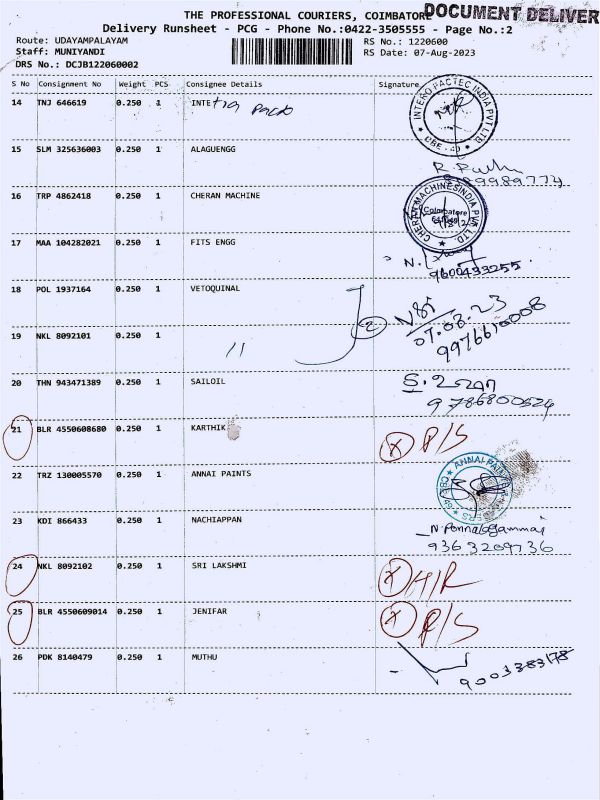 THE PROFESSIONAL COURIERS, COIMBATORE
DOCUMENT DELIVER
Delivery Runsheet - PCG - Phone No.:0422-3505555 - Page No.:2
Route: UDAYAMPALAYAM
RS No.: 1220600
Staff: MUNIYANDI
RS Date: 07-Aug-2023
DRS No.: DCJB122060002
S No Consignment No Weight PCS Consignee Details Signature
14 TNJ 646619 0.250 1 INTE
INTERO PACTEC INDIA PVT LTD
CBE
15 SLM 325636003 0.250 1 ALAGUENGG
16 TRP 4862418 0.250 1 CHERAN MACHINE
CHERAN MACHINES INDIA PVT. LTD
Coimbatore
17 MAA 104282021 0.250 1 FITS ENGG
9600433255
18 POL 1937164 0.250 1 VETOQUINAL
2
07.08.23
9976610008
19 NKL 8092101 0.250 1
11
20 THN 943471389 0.250 1 SAILOIL
9786800524
21 BLR 4550608680 0.250 1 KARTHIK
X P/S
22 TRZ 130005570 0.250 1 ANNAI PAINTS
23 KDI 866433 0.250 1 NACHIAPPAN
9363209736
24 NKL 8092102 0.250 1 SRI LAKSHMI
X H/R
25 BLR 4550609014 0.250 1 JENIFAR
X P/S
26 PDK 8140479 0.250 1 MUTHU
9003383178